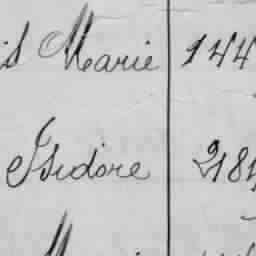 Marie 144
Isidore 218